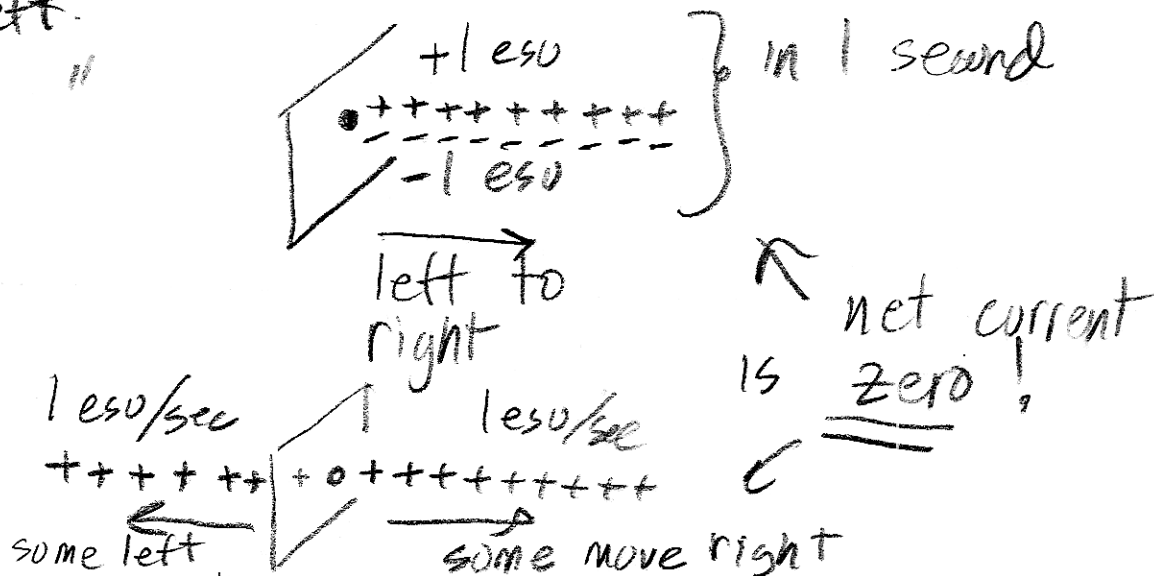 left.
"
+1 esu
in 1 second
+ + + + + + + + +
- - - - - - - - -
-1 esu
left to
right
net current
is zero!
1 esu/sec
1 esu/sec
+ + + + + + + + + + + + + + + +
some left
some move right